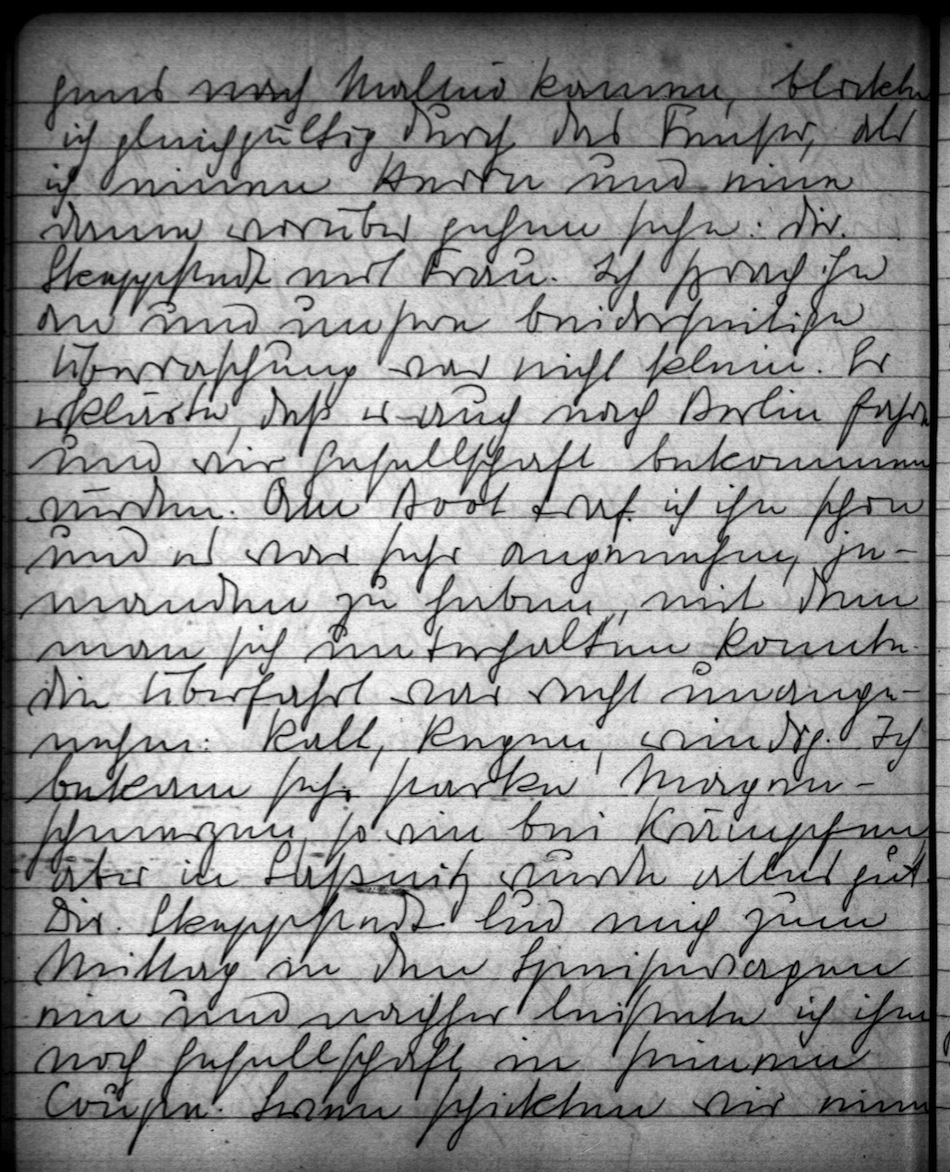 gend nach Malmö kamen, blickte
ich gleichgültig durch das Fenster, als
ich einen Herrn und eine
Dame vorüber gehen sehe: Dir.
Skappstedt mit Frau. Ich sprach ihn
an und unsere beiderseitige
Überraschung war nicht klein. Er
erklärte, daß er auch nach Berlin fahre
und wir Gesellschaft bekommen
würden. Am Boot traf ich ihn schon
und es war sehr angenehm, je-
manden zu haben, mit dem
man sich unterhalten konnte.
Die Überfahrt war recht unange-
nehm: Kalt, Regen, windig. Ich
bekam sehr starke Magen-
schmerzen, so wie bei Krämpfen
aber in Saßnitz wurde alles gut.
Dir. Skappstedt lud mich zum
Mittag in den Speisewagen
ein und nachher leistete ich ihm
noch Gesellschaft in seinem
Coupe. Dann schickten wir einen